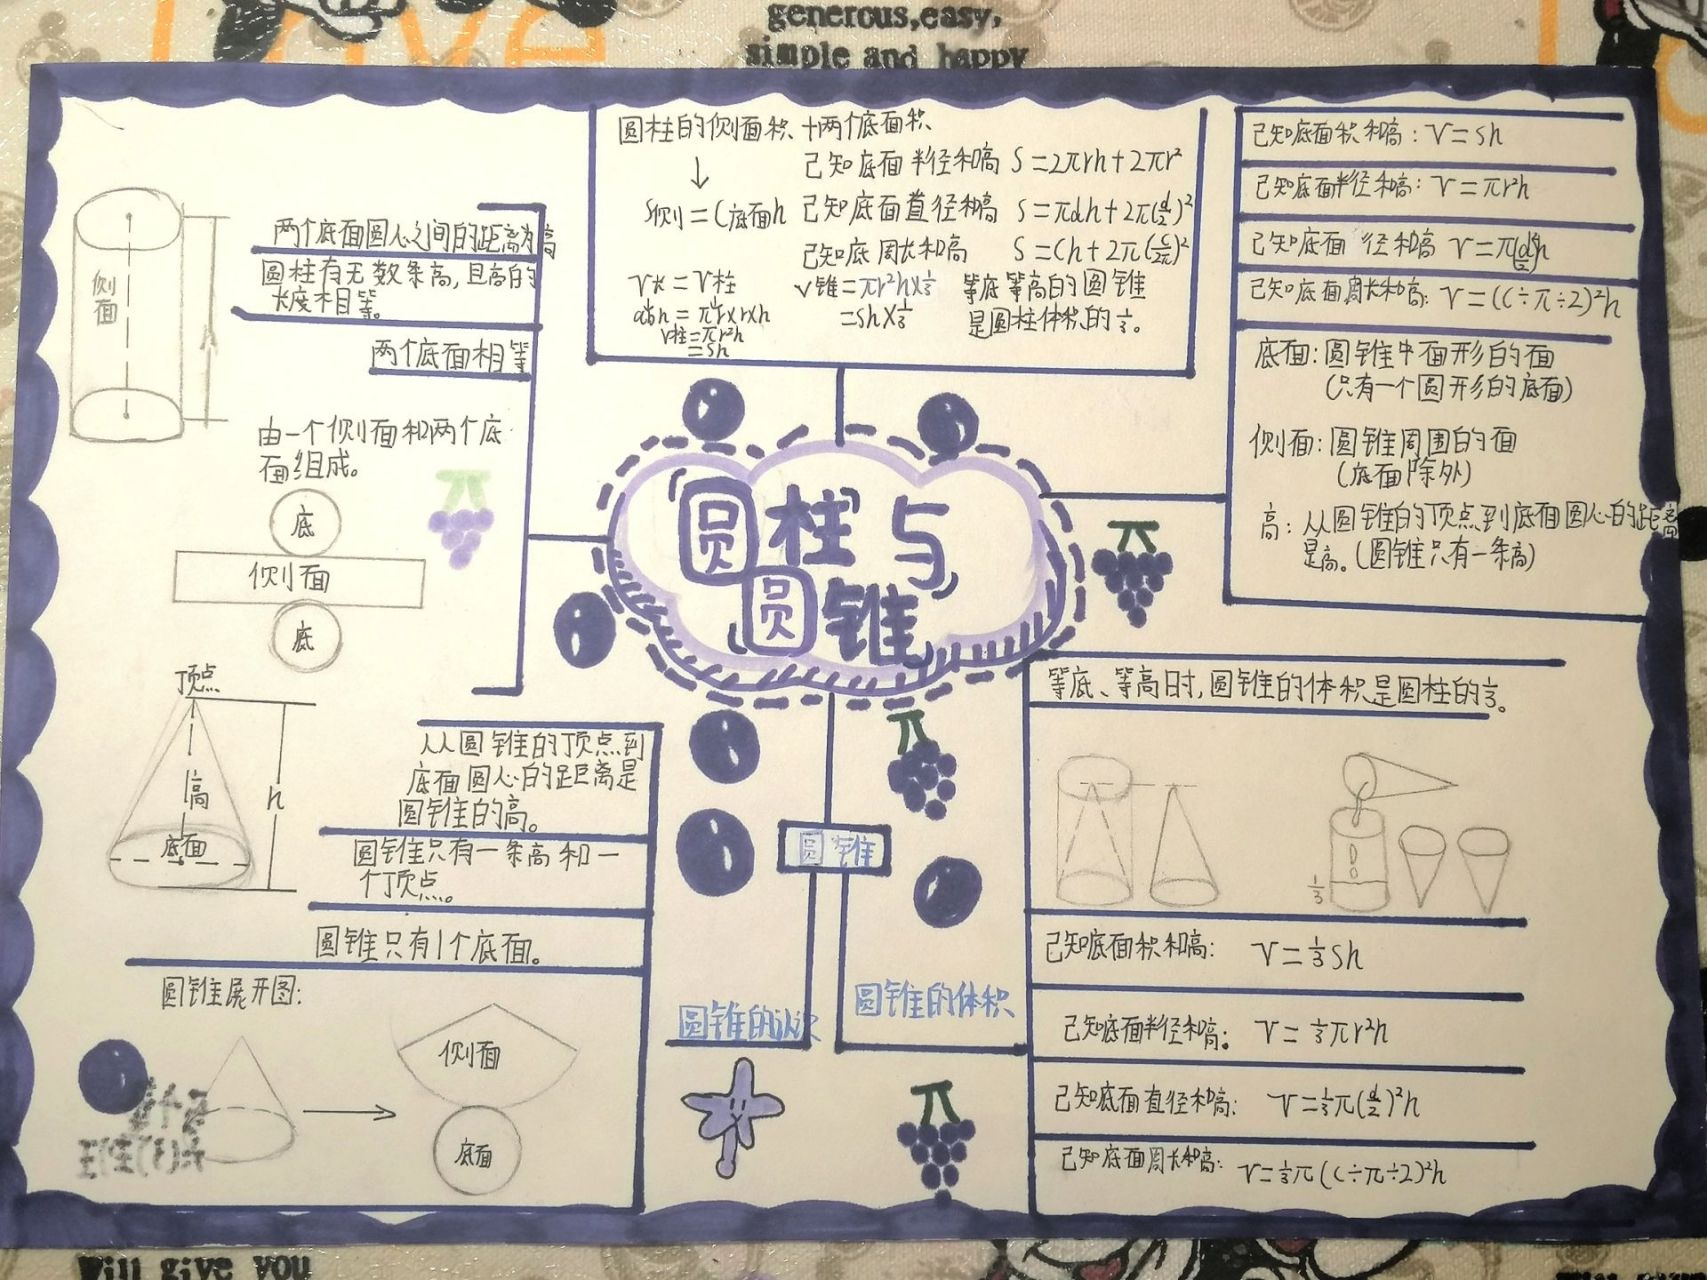 generous,easy,
simple and happy
圆柱的侧面积+两个底面积
↓
S侧=C底面h
已知底面半径和高 S=2πrh+2πr²
已知底面直径和高 S=πdh+2π(d/2)²
已知底周长和高 S=Ch+2π(C/2π)²
V长=V柱
abh=πr×r×h
V柱=πr²h
=sh
V锥=πr²h×1/3
=sh×1/3
等底等高的圆锥
是圆柱体积的1/3。
已知底面积和高:V=sh
已知底面半径和高:V=πr²h
已知底面径和高 V=π(d/2)²h
已知底面周长和高:V=(C÷π÷2)²h
底面:圆锥中面形的面
(只有一个圆形的底面)
侧面:圆锥周围的面
(底面除外)
高:从圆锥的顶点到底面圆心的距离
是高。(圆锥只有一条高)
侧面
两个底面圆心之间的距离为高
圆柱有无数条高,且高的
长度相等。
两个底面相等
由一个侧面和两个底
面组成。
底
侧面
底
圆柱与
圆锥
顶点
高
h
底面
从圆锥的顶点到
底面圆心的距离是
圆锥的高。
圆锥只有一条高和一
个顶点。
圆锥只有1个底面。
圆锥展开图:
侧面
底面
圆锥
圆锥的认识
圆锥的体积
等底、等高时,圆锥的体积是圆柱的1/3。
1/3
已知底面积和高: V=1/3sh
已知底面半径和高。 V=1/3πr²h
已知底面直径和高: V=1/3π(d/2)²h
已知底面周长和高: V=1/3π(C÷π÷2)²h
Will give you